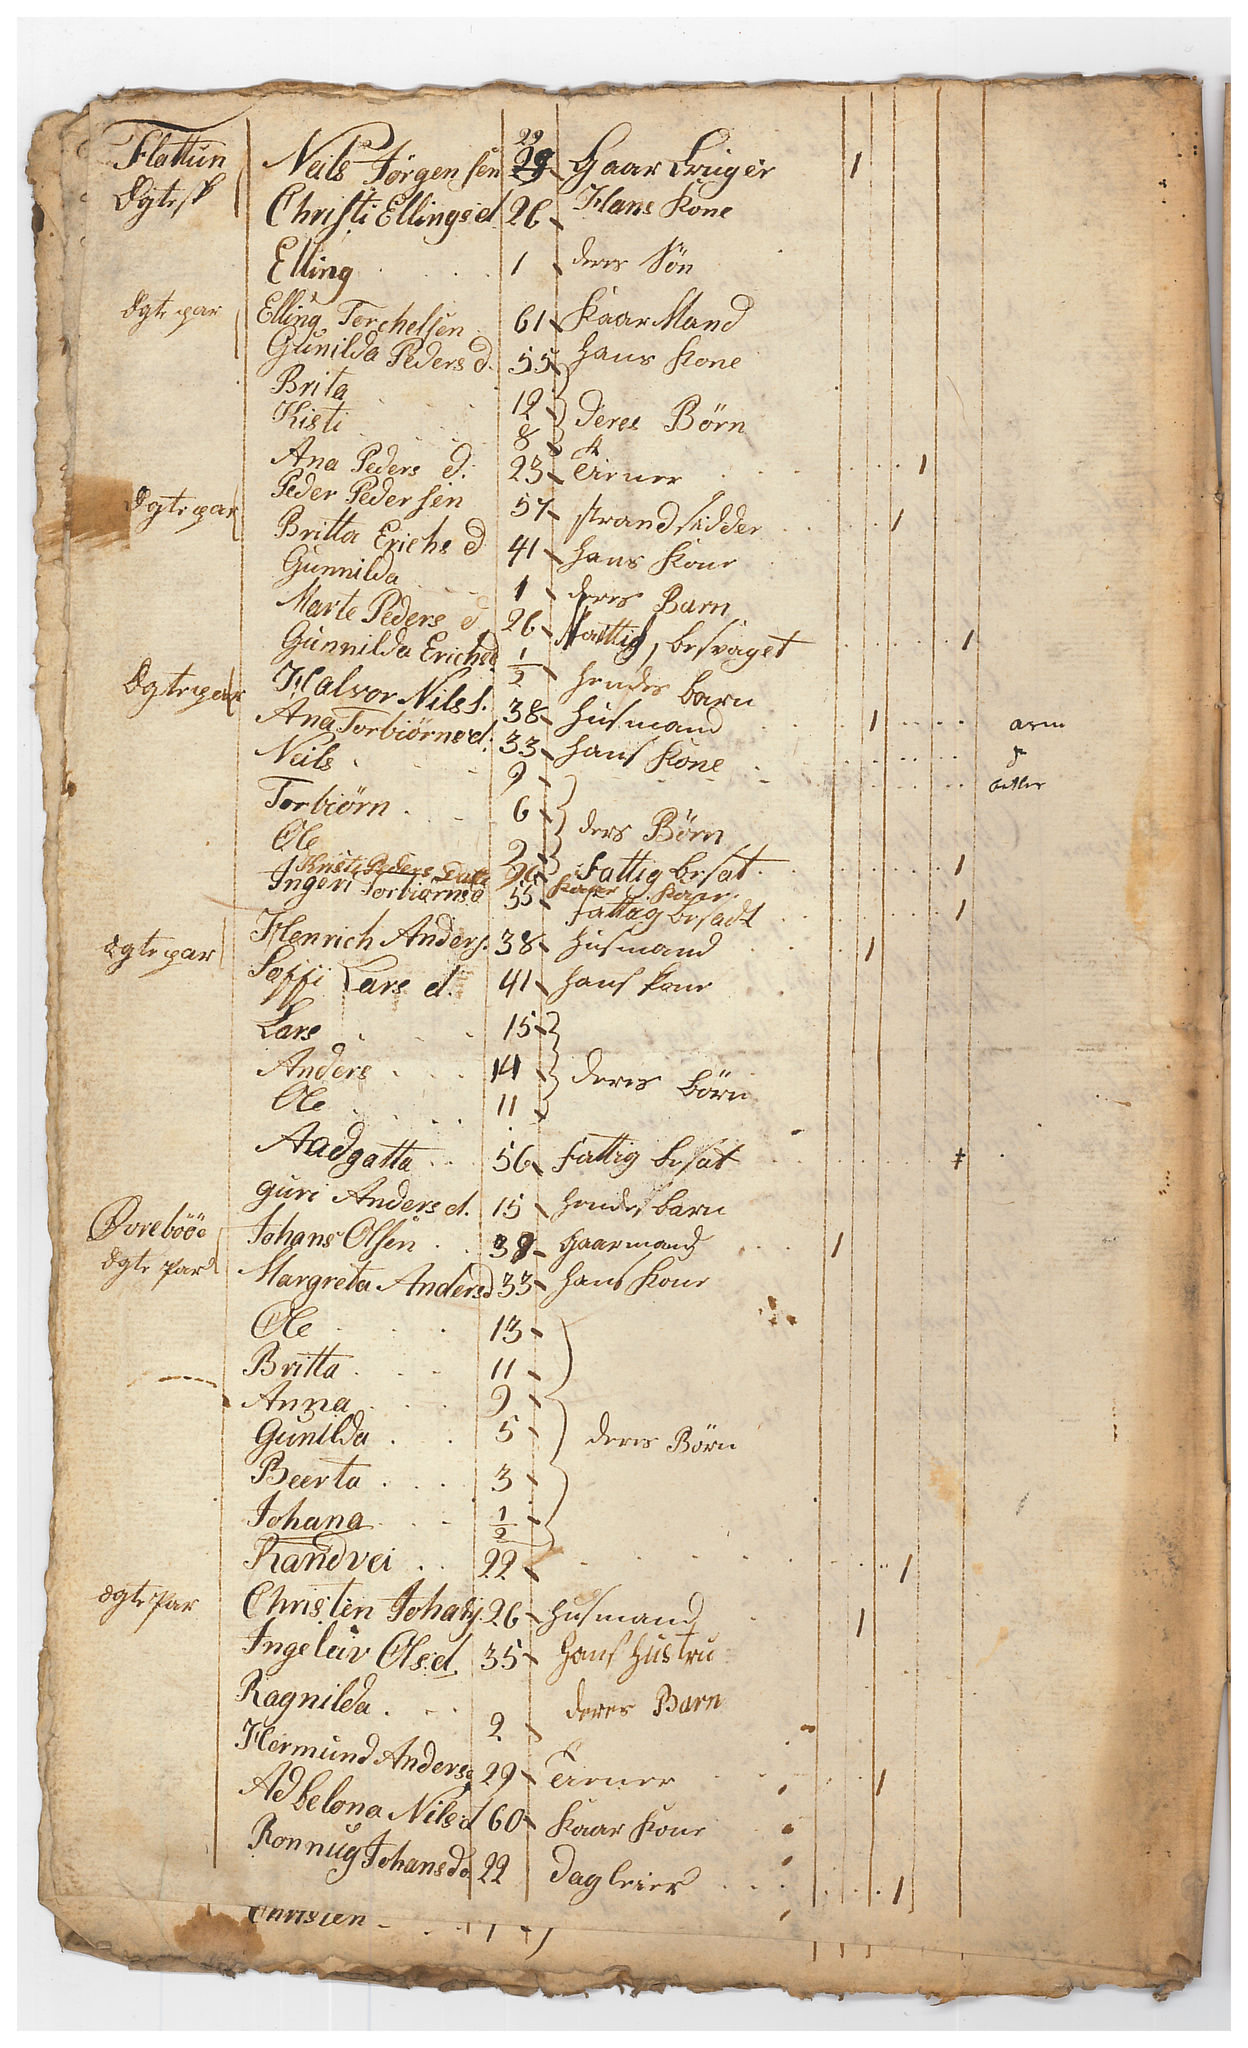 Flattun Neils Jørgensen 29 29 Gaar Bruger 1
Ægtesk Christi Ellingsd 26 Hans Kone
Elling 1 deres Søn
Ægte par Elling Torchelsen 61 KaarMand
Gunilda Peders d. 55 hans Kone
Brita 12 deres Børn
Kisti 8
Ana Peders d. 23 tiener 1
Ægte par Peder Pedersen 57 strandsidder 1
Britta Erichs d 41 hans Kone
Gunnilda 1 deres Barn
Marte Peders d 26 fattig, besvaget 1
Gunnilda Erichsd 1/2 hendes barn
Ægte par Halvor Nils s. 38 husmand 1 arm
Ana Torbiørnsd. 33 hans Kone
Neils 9
Torbiørn 6 ders Børn
Ole 2
Kristi Peders Datter 26 fattig besat 1
Ingeri Torbiørnsd 55 fattig besadt 1
ægte par Henrich Anders. 38 husmand 1
Soffi Lars d. 41 hans kone
Lars 15
Anders 14 deres børn
Ole 11
Aadgatta 56 fattig besat 1
guri Anders d. 15 hendes barn
Øvrebøøe Johans Olsen 39 gaarmand 1
Ægte Par Margreta Andersd 33 hans Kone
Ole 13
Britta 11
Anna 9
Gunilda 5 deres Børn
Beerta 3
Johana 1/2
Randvei 22 1
ægte Par Christen Johans. 26 husmand 1
Ingeleiv Ols d. 35 hans hustru
Ragnilda 2 deres Barn
Hermund Anders 29 tiener 1
Adbelona Nilsd 60 Kaar Kone
Ronnug Johansda 22 dagleier 1
Christen